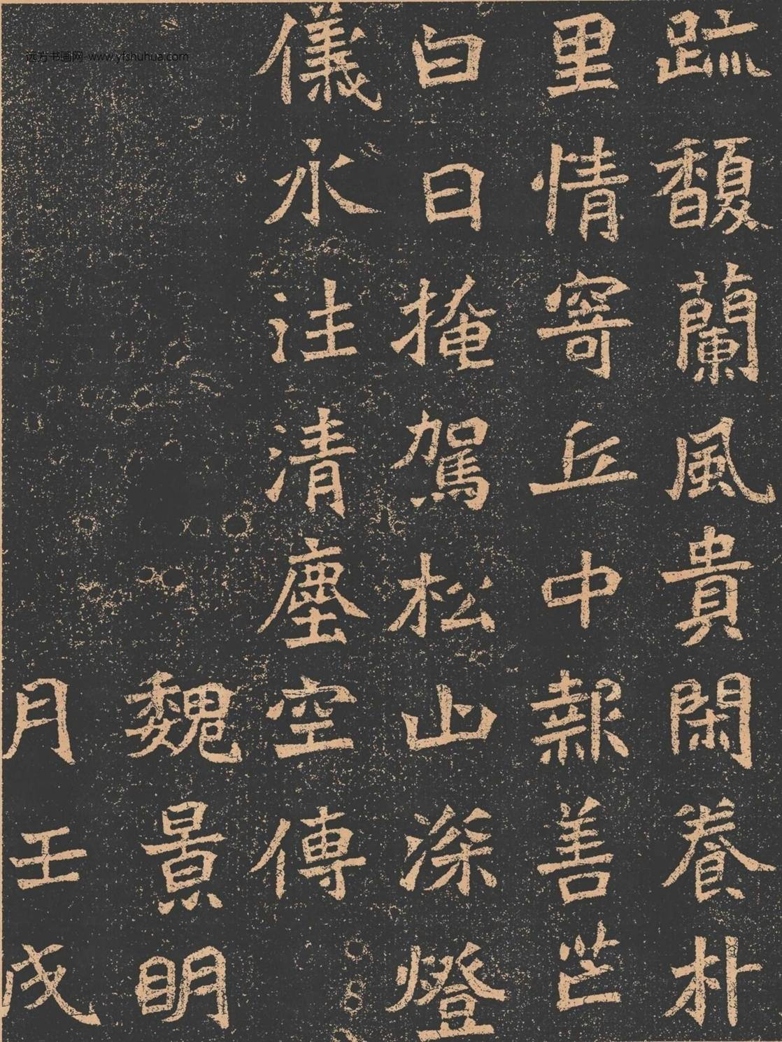 远方书画网-www.yfshuhua.com
疏馥蘭風貴閑養朴
里情寄丘中報善芒
白日掩駕松山深燈
儀永注清塵空傳
魏景明
月壬戌